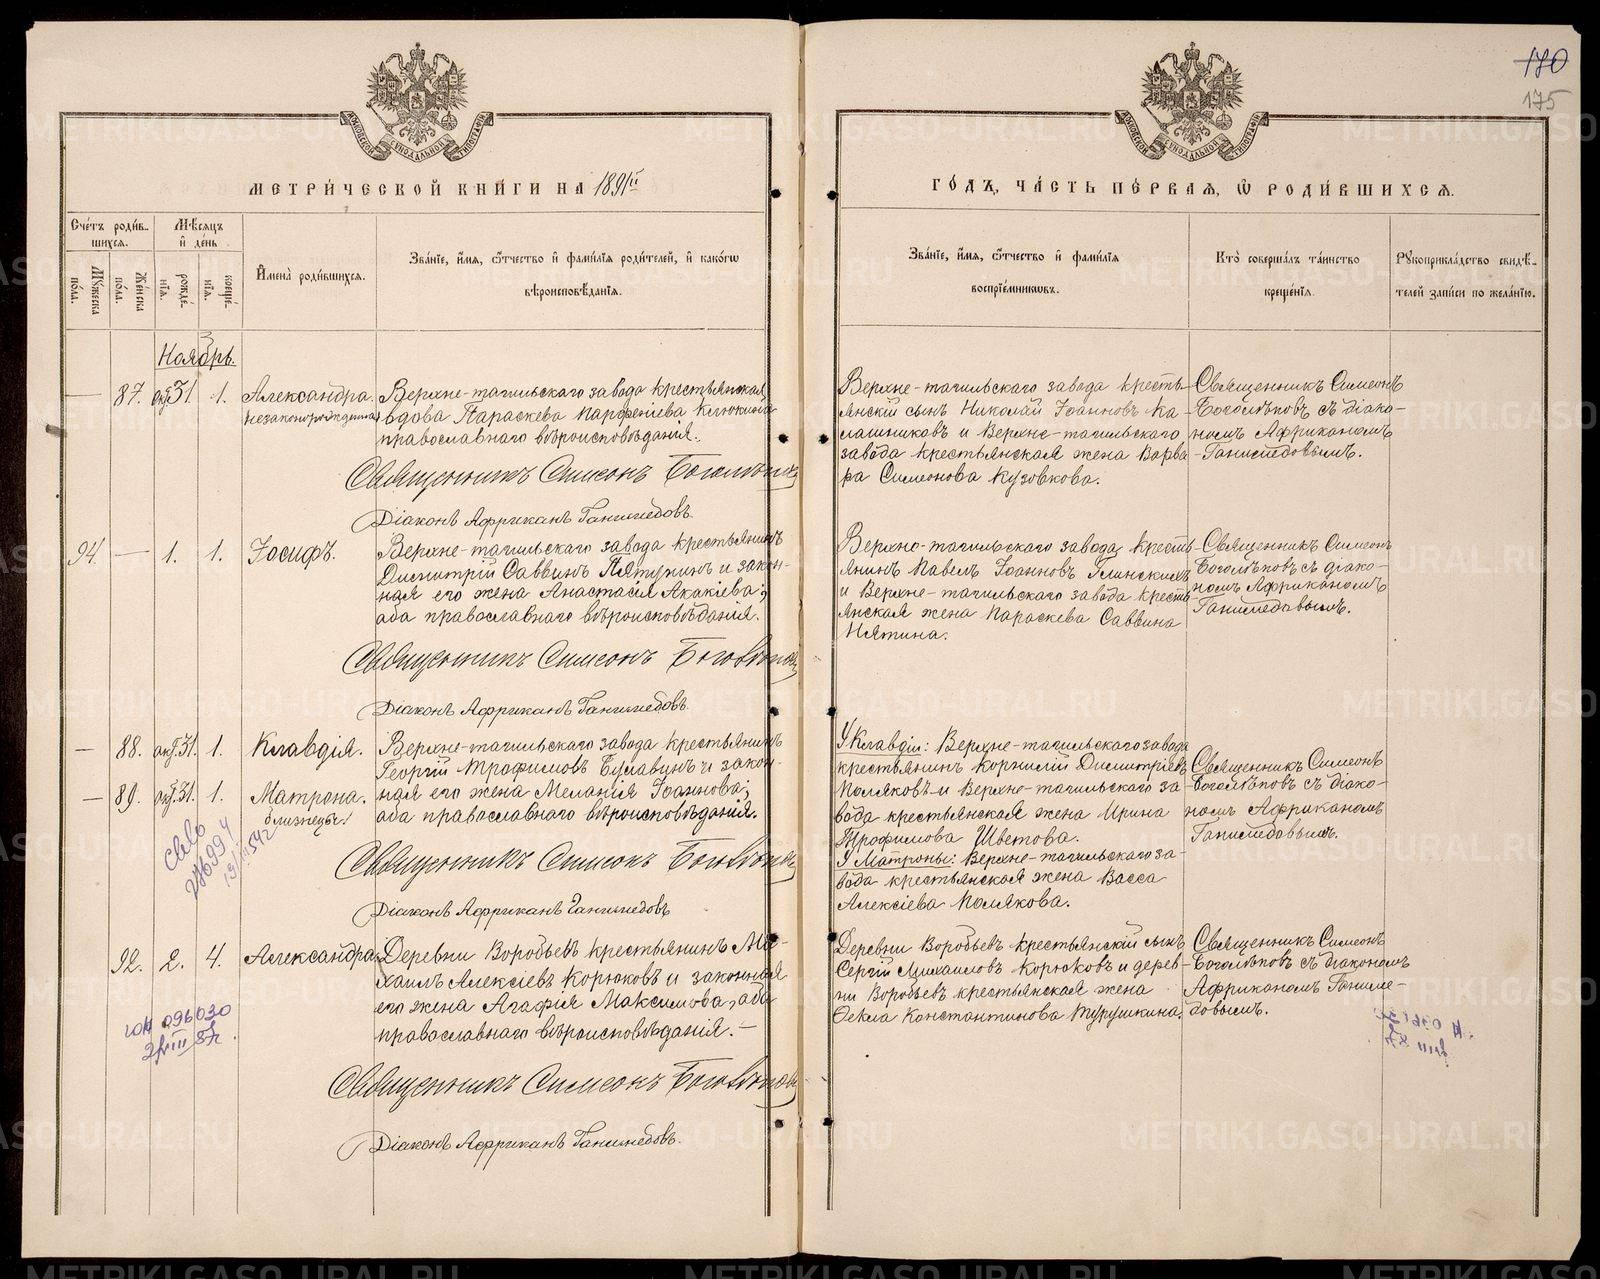 170
175
МЕТРИЧЕСКОЙ КНИГИ НА 1891й
ГОДЪ, ЧАСТЬ ПЕРВАЯ, Ѡ РОДИВШИХСЯ.
Счетъ родив-
шихся.
Мѣсяцъ
и день
Мужеска
пола.
Женска
пола.
рожде-
нія.
креще-
нія.
Имена родившихся.
Званіе, имя, ѿчество и фамилія родителей, и какогω
вѣроисповѣданія.
Званіе, имя, ѿчество и фамилія
воспріемникωвъ.
Кто совершалъ таинство
крещенія.
Рукоприкладство свидѣ-
телей записи по желанію.
Ноябрь.
— 87. окт. 31 1. Александра.
незаконорожденная
Верхне-тагильскаго завода крестьянская
вдова Параскева Парѳеніева Клюкина
православнаго вѣроисповѣданія.
Священникъ Симеонъ Боголѣповъ
Діаконъ Африканъ Ганимедовъ.
Верхне-тагильскаго завода кресть-
янскій сынъ Николай Іоанновъ Ка-
лашниковъ и Верхне-тагильскаго
завода крестьянская жена Варва-
ра Симеонова Кузовкова.
Священникъ Симеонъ
Боголѣповъ съ діако-
номъ Африканомъ
Ганимедовымъ.
94. — 1. 1. Іосифъ.
Верхне-тагильскаго завода крестьянинъ
Димитрій Саввинъ Пятунинъ и закон-
ная его жена Анастасія Акакіева;
оба православнаго вѣроисповѣданія.
Священникъ Симеонъ Боголѣповъ
Діаконъ Африканъ Ганимедовъ.
Верхно-тагильскаго завода кресть-
янинъ Павелъ Іоанновъ Глинскихъ
и Верхне-тагильскаго завода кресть-
янская жена Параскева Саввина
Нятина.
Священникъ Симеонъ
Боголѣповъ съ діако-
номъ Африканомъ
Ганимедовымъ.
— 88. окт. 31. 1. Клавдія.
— 89. окт. 31. 1. Матрона.
близнецы.
Верхне-тагильскаго завода крестьянинъ
Георгій Трофимовъ Булавинъ и закон-
ная его жена Меланія Іоаннова;
оба православнаго вѣроисповѣданія.
Священникъ Симеонъ Боголѣповъ
Діаконъ Африканъ Ганимедовъ
У Клавдіи: Верхне-тагильскаго завода
крестьянинъ Корнилій Димитріевъ
Поляковъ и Верхне-тагильскаго за-
вода крестьянская жена Ирина
Трофимова Цветова.
У Матроны: Верхне-тагильскаго за-
вода крестьянская жена Васса
Алексіева Полякова.
Священникъ Симеонъ
Боголѣповъ съ діако-
номъ Африканомъ
Ганимедовымъ.
92. 2. 4. Александра
Деревни Воробьевъ крестьянинъ Ми-
хаилъ Алексіевъ Корюковъ и законная
его жена Агафія Максимова, оба
православнаго вѣроисповѣданія.—
Священникъ Симеонъ Боголѣповъ
Діаконъ Африканъ Ганимедовъ.
Деревни Воробьевъ крестьянскій сынъ
Сергій Михаиловъ Корюковъ и дерев-
ни Воробьевъ крестьянская жена
Ѳекла Константинова Турушкина.
Священникъ Симеонъ
Боголѣповъ съ діакономъ
Африканомъ Ганиме-
довымъ.
096030
METRIKI.GASO-URAL.RU